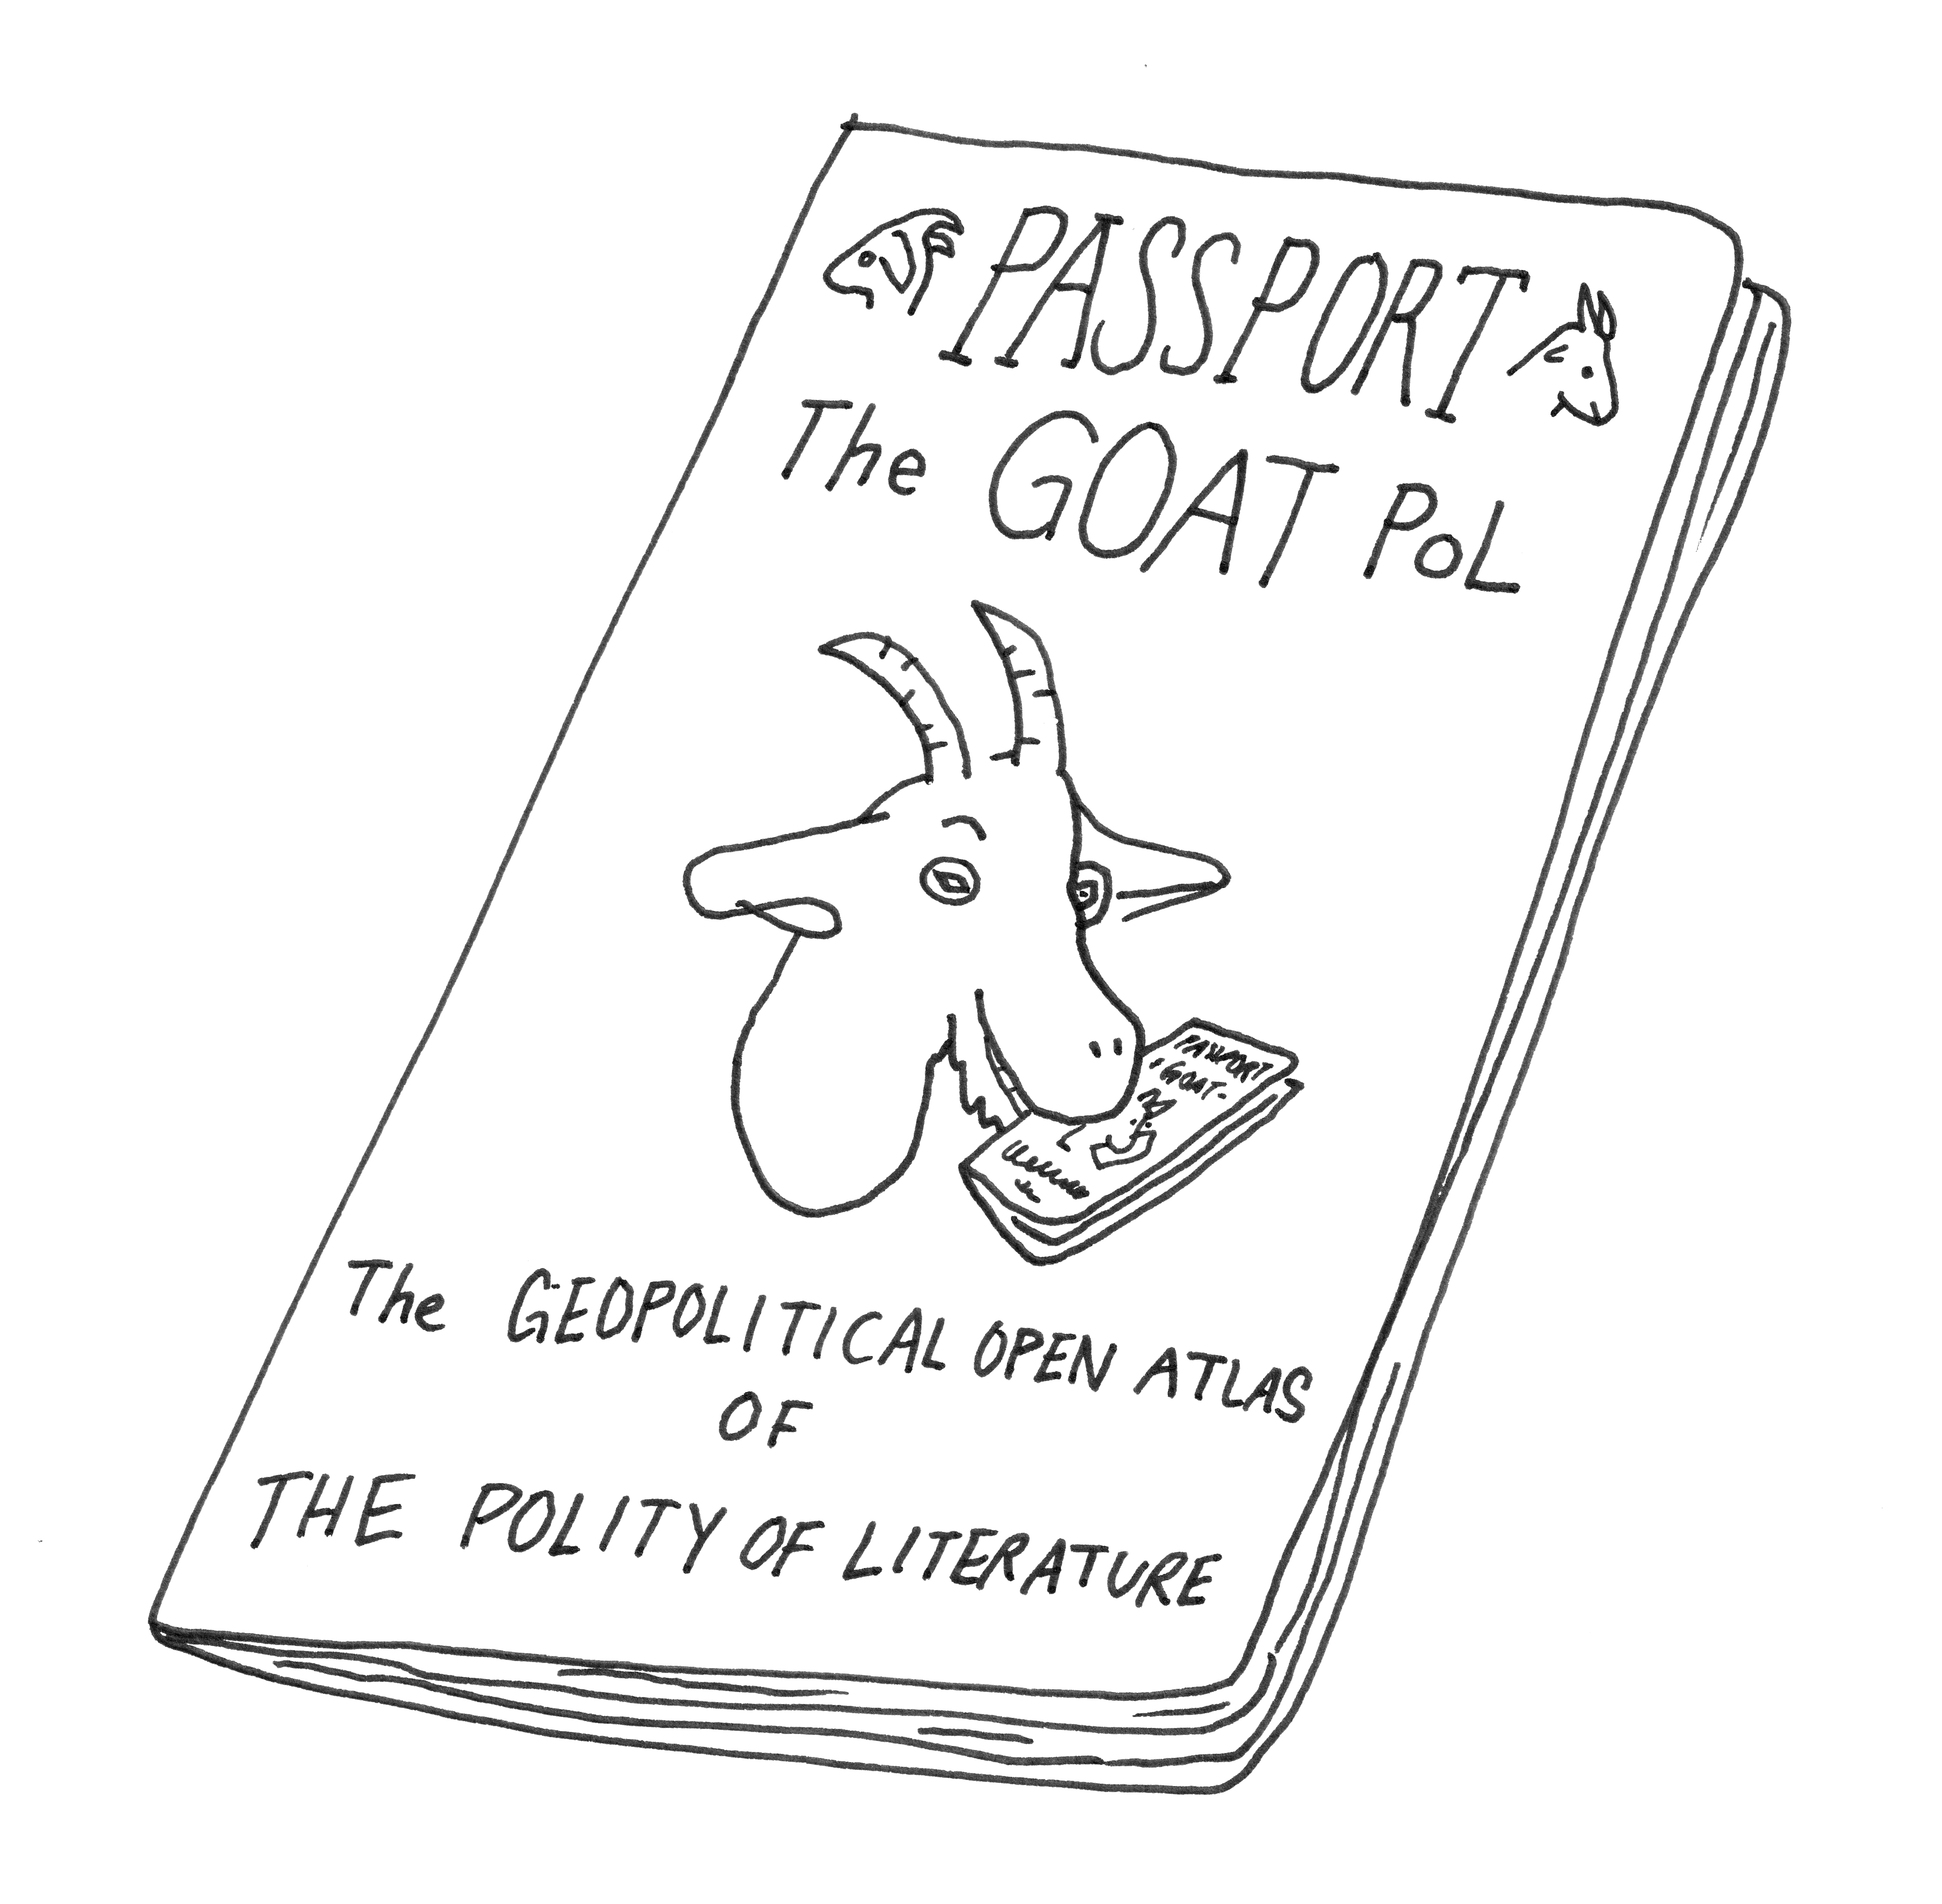 PASSPORT
The GOAT PoL
PASSPORT
GOAT
The GEOPOLITICAL OPEN ATLAS
OF
THE POLITY OF LITERATURE